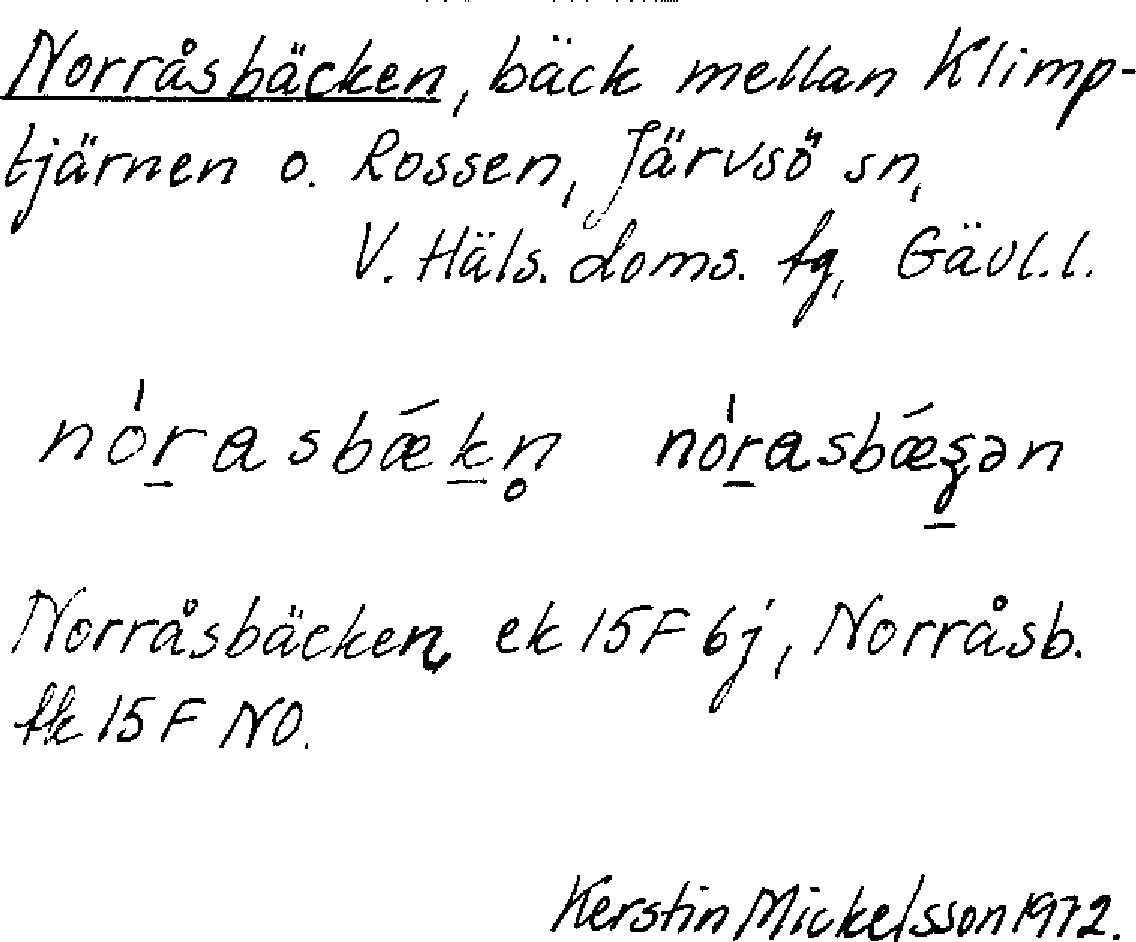 Norråsbäcken, bäck mellan Klimp-
tjärnen o. Rossen, Järvsö sn,
V. Häls. doms. tg, Gävl. l.
nó̍r̠asbǽk̠n̥ nó̍r̠asbǽʂ̠ən
Norråsbäcken, ek 15F 6j, Norråsb.
tk 15F NO.
Kerstin Mickelsson 1972.